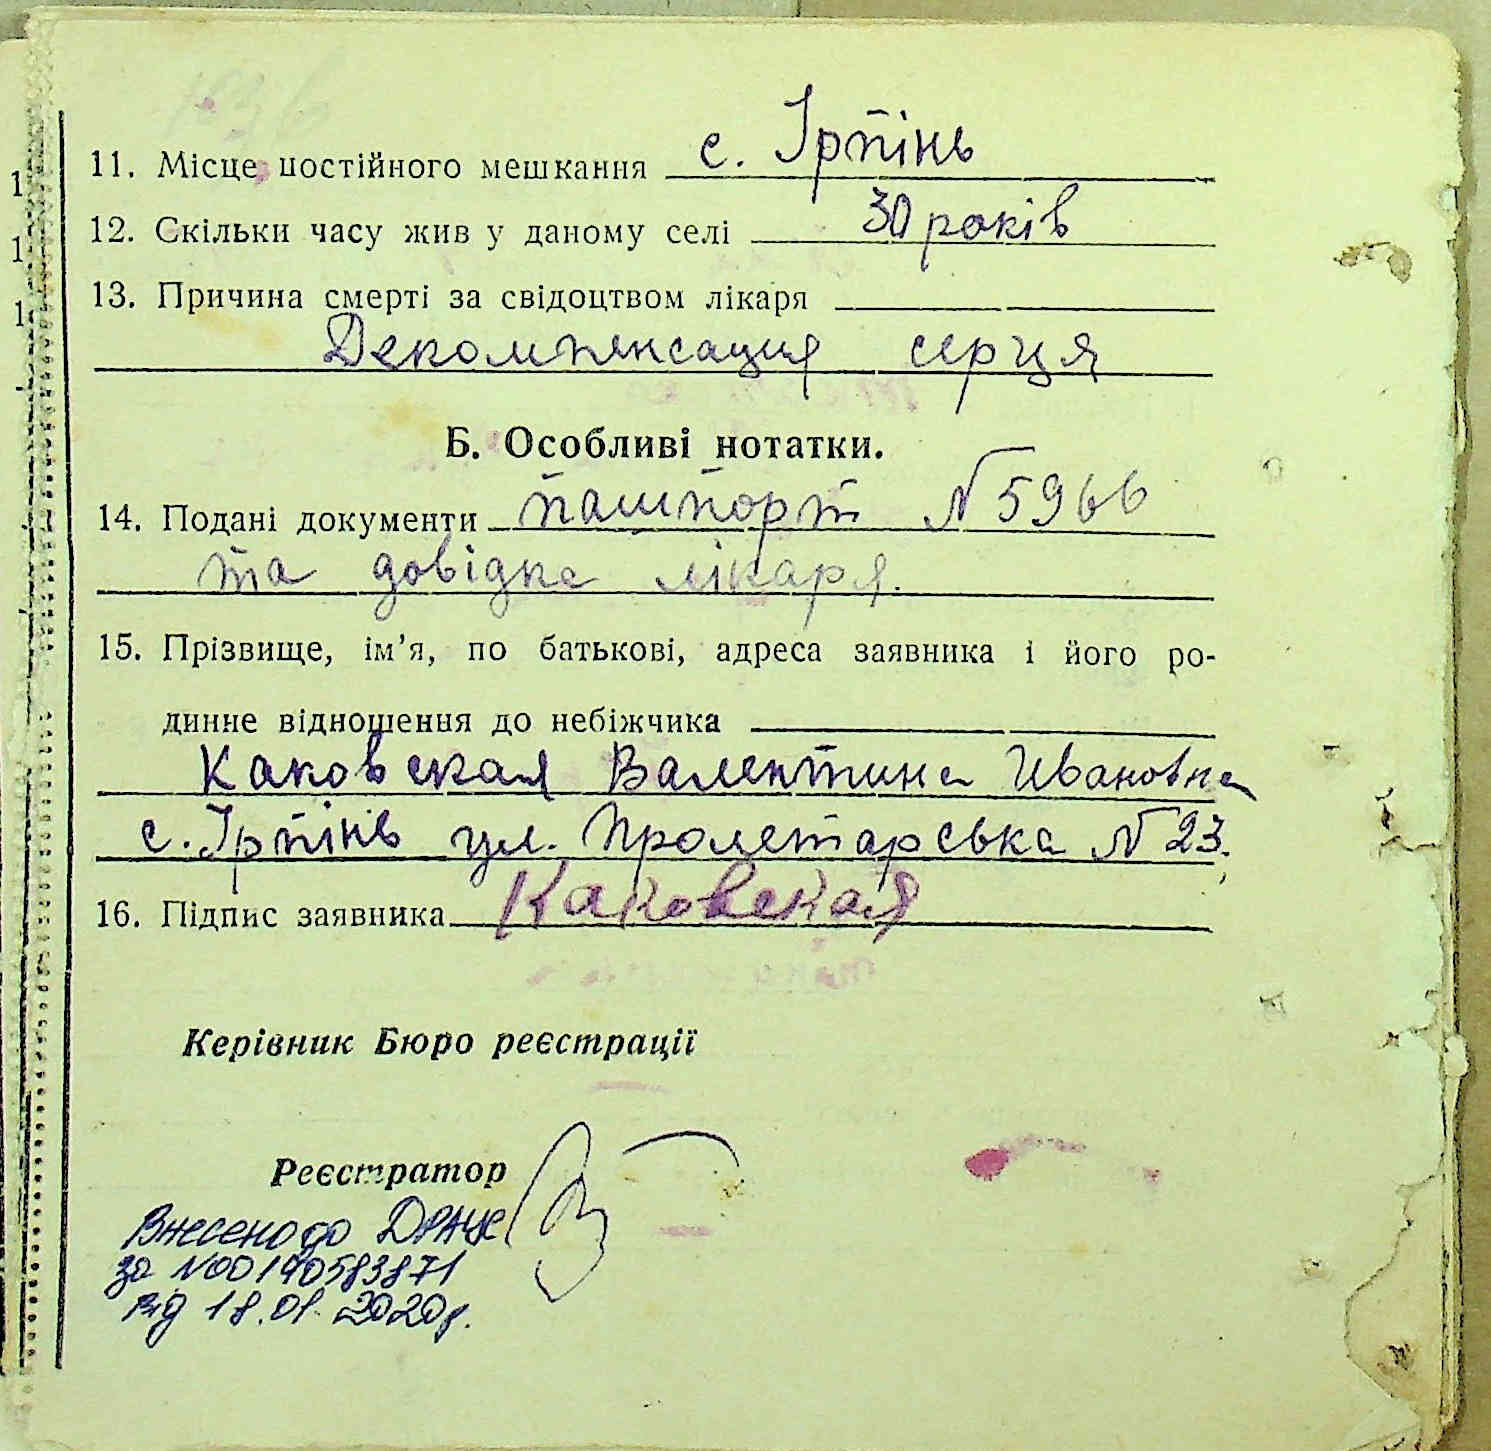 11. Місце постійного мешкання с. Ірпінь
12. Скільки часу жив у даному селі 30 років
13. Причина смерті за свідоцтвом лікаря
Декомпенсация серця
Б. Особливі нотатки.
14. Подані документи пашпорт № 5966
та довідка лікаря.
15. Прізвище, ім'я, по батькові, адреса заявника і його ро-
динне відношення до небіжчика
Каковская Валентина Ивановна
с. Ірпінь ул. Пролетарська № 23.
16. Підпис заявника Каковская
Керівник Бюро реєстрації
Реєстратор
Внесено до ДРАЦС
за №00190583871
від 18.01.2020р.